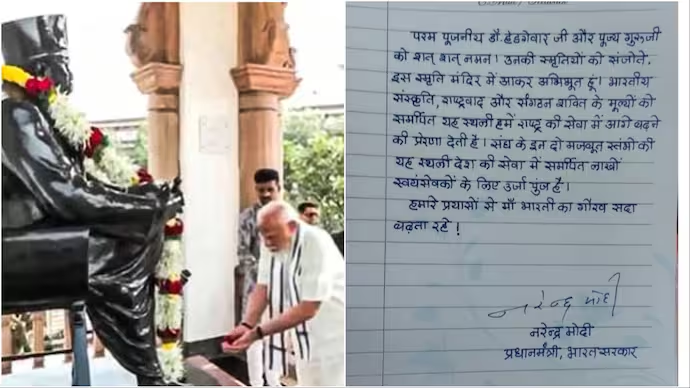 परम पूजनीय डॉ. हेडगेवार जी और पूज्य गुरूजी
को शत् शत् नमन। उनकी स्मृतियों को संजोते,
इस स्मृति मंदिर में आकर अभिभूत हूं। भारतीय
संस्कृति, राष्ट्रवाद और संगठन शक्ति के मूल्यों को
समर्पित यह स्थली हमें राष्ट्र की सेवा में आगे बढ़ने
की प्रेरणा देती है। संघ के इन दो मजबूत स्तंभों की
यह स्थली देश की सेवा में समर्पित लाखों
स्वयंसेवकों के लिए उर्जा पुंज है।
हमारे प्रयासों से माँ भारती का गौरव सदा
बढ़ता रहे!
नरेन्द्र मोदी
नरेन्द्र मोदी
प्रधानमंत्री, भारत सरकार